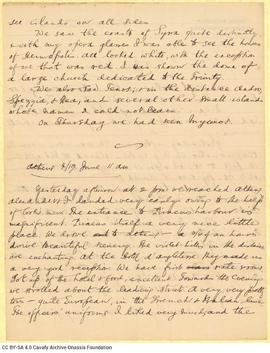 see islands on all sides.
We saw the coasts of Syra quite distinctly
with my opera glasses I was able to see the houses
of Hermopolis all looked white, with the exception
of one that was red I was shown the dome of
a large church dedicated to the Trinity.
We also saw Tenos, in the distance Andros,
and several other small islands
whose names I could not learn.
On Thursday we had seen Myconos.
Athens June 11 am
Yesterday afternoon at 2 we reached Athens
Alexander & I landed very early owing to the help
of The entrance to Piraeus harbour is
magnificent. Piraeus itself a very nice little
place. We drove to Athens 3/4 of an hour's
drive beautiful scenery. The violet hills in the
are enchanting at the Hotel d'Angleterre they made us
a very good reception We have first rate rooms
Lots of the hotel & food, excellent. Towards the evening
we strolled about the leading street. A very pretty
town - quite European, in the French & Italian line
The officers uniforms I liked very much, and the
CC BY-SA 4.0 Cavafy Archive Onassis Foundation